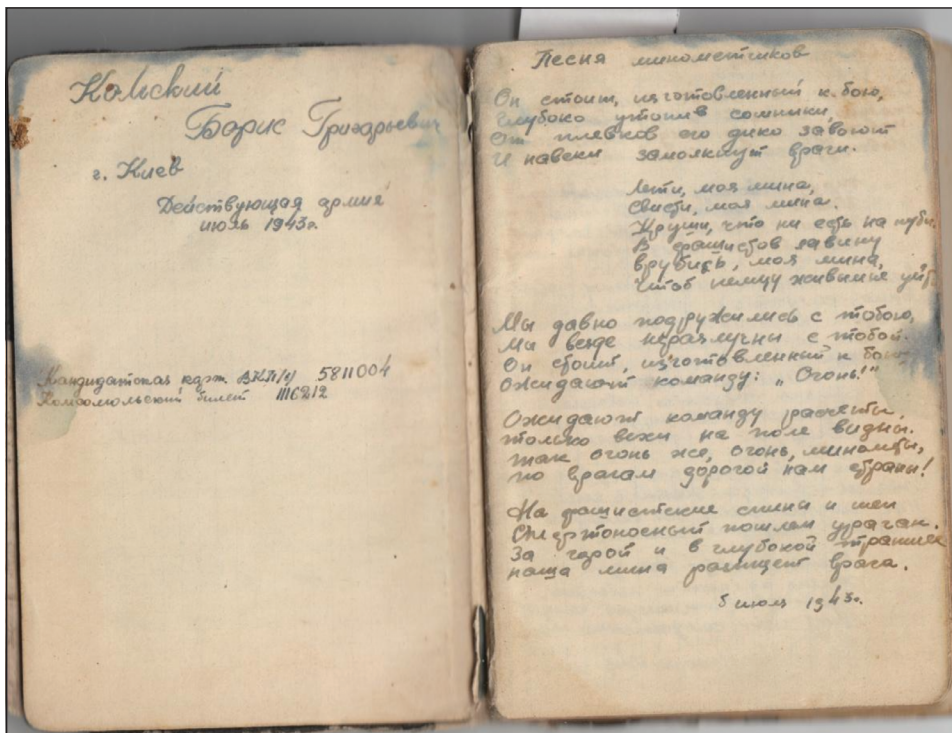 Комский
Борис Григорьевич
г. Киев
Действующая армия
июль 1943г.
Кандидатская карт. ВКП/б/ 5811004
Комсомольский билет
Песня минометчиков
Он стоит, изготовленный к бою,
Глубоко утопив сошники,
От плевков его дико завоют
И навеки замолкнут враги.
Лети, моя мина,
Свисти, моя мина.
Круши, что ни есть на пути.
В фашистов лавину
врубись, моя мина,
чтоб немцу живым не уйти
Мы давно подружились с тобою,
Мы везде неразлучны с тобой.
Он стоит, изготовленный к бою
Ожидают команду: „Огонь!"
Ожидают команду расчеты,
только вехи на поле видны.
так огонь же, огонь, минометы,
по врагам дорогой нам страны!
На фашистские спины и шеи
Смертоносный пошлем ураган.
За горой и в глубокой траншее
наша мина разыщет врага.
5 июля 1943г.